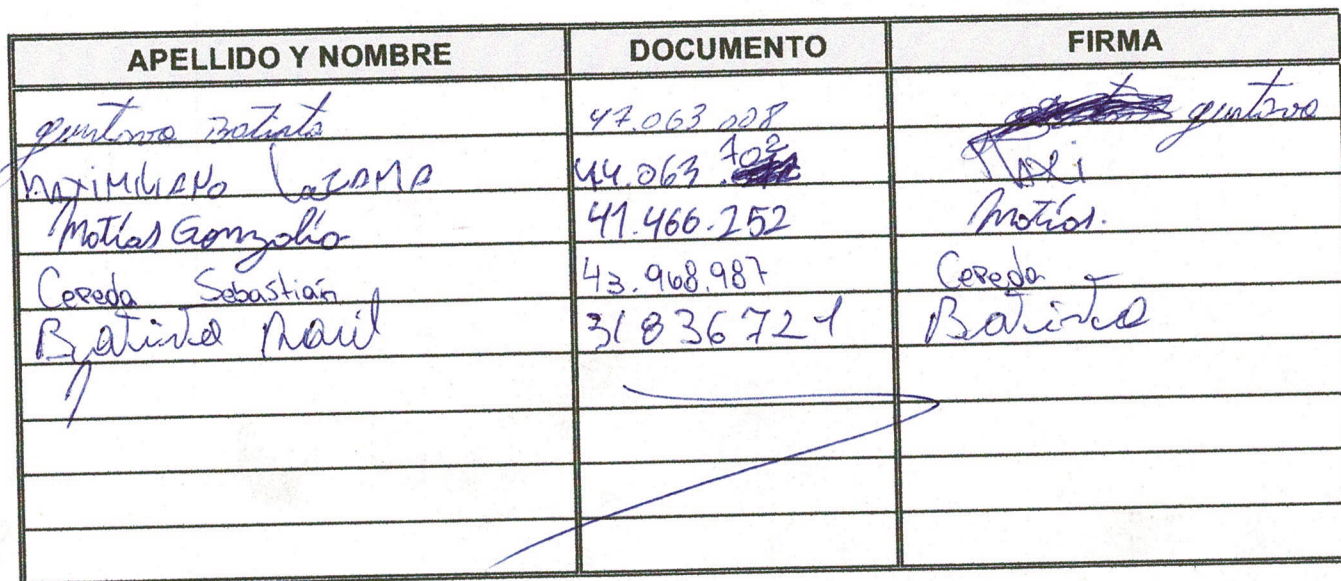 APELLIDO Y NOMBRE DOCUMENTO FIRMA
gustavo Batista 47.063.028 gustavo
MAXIMILIANO LaZAMA 44.063.702 MAXi
Matías Gonzalio 41.466.252 Matías.
Cepeda Sebastián 43.968.987 Cepeda
Batista 31836721 Batista